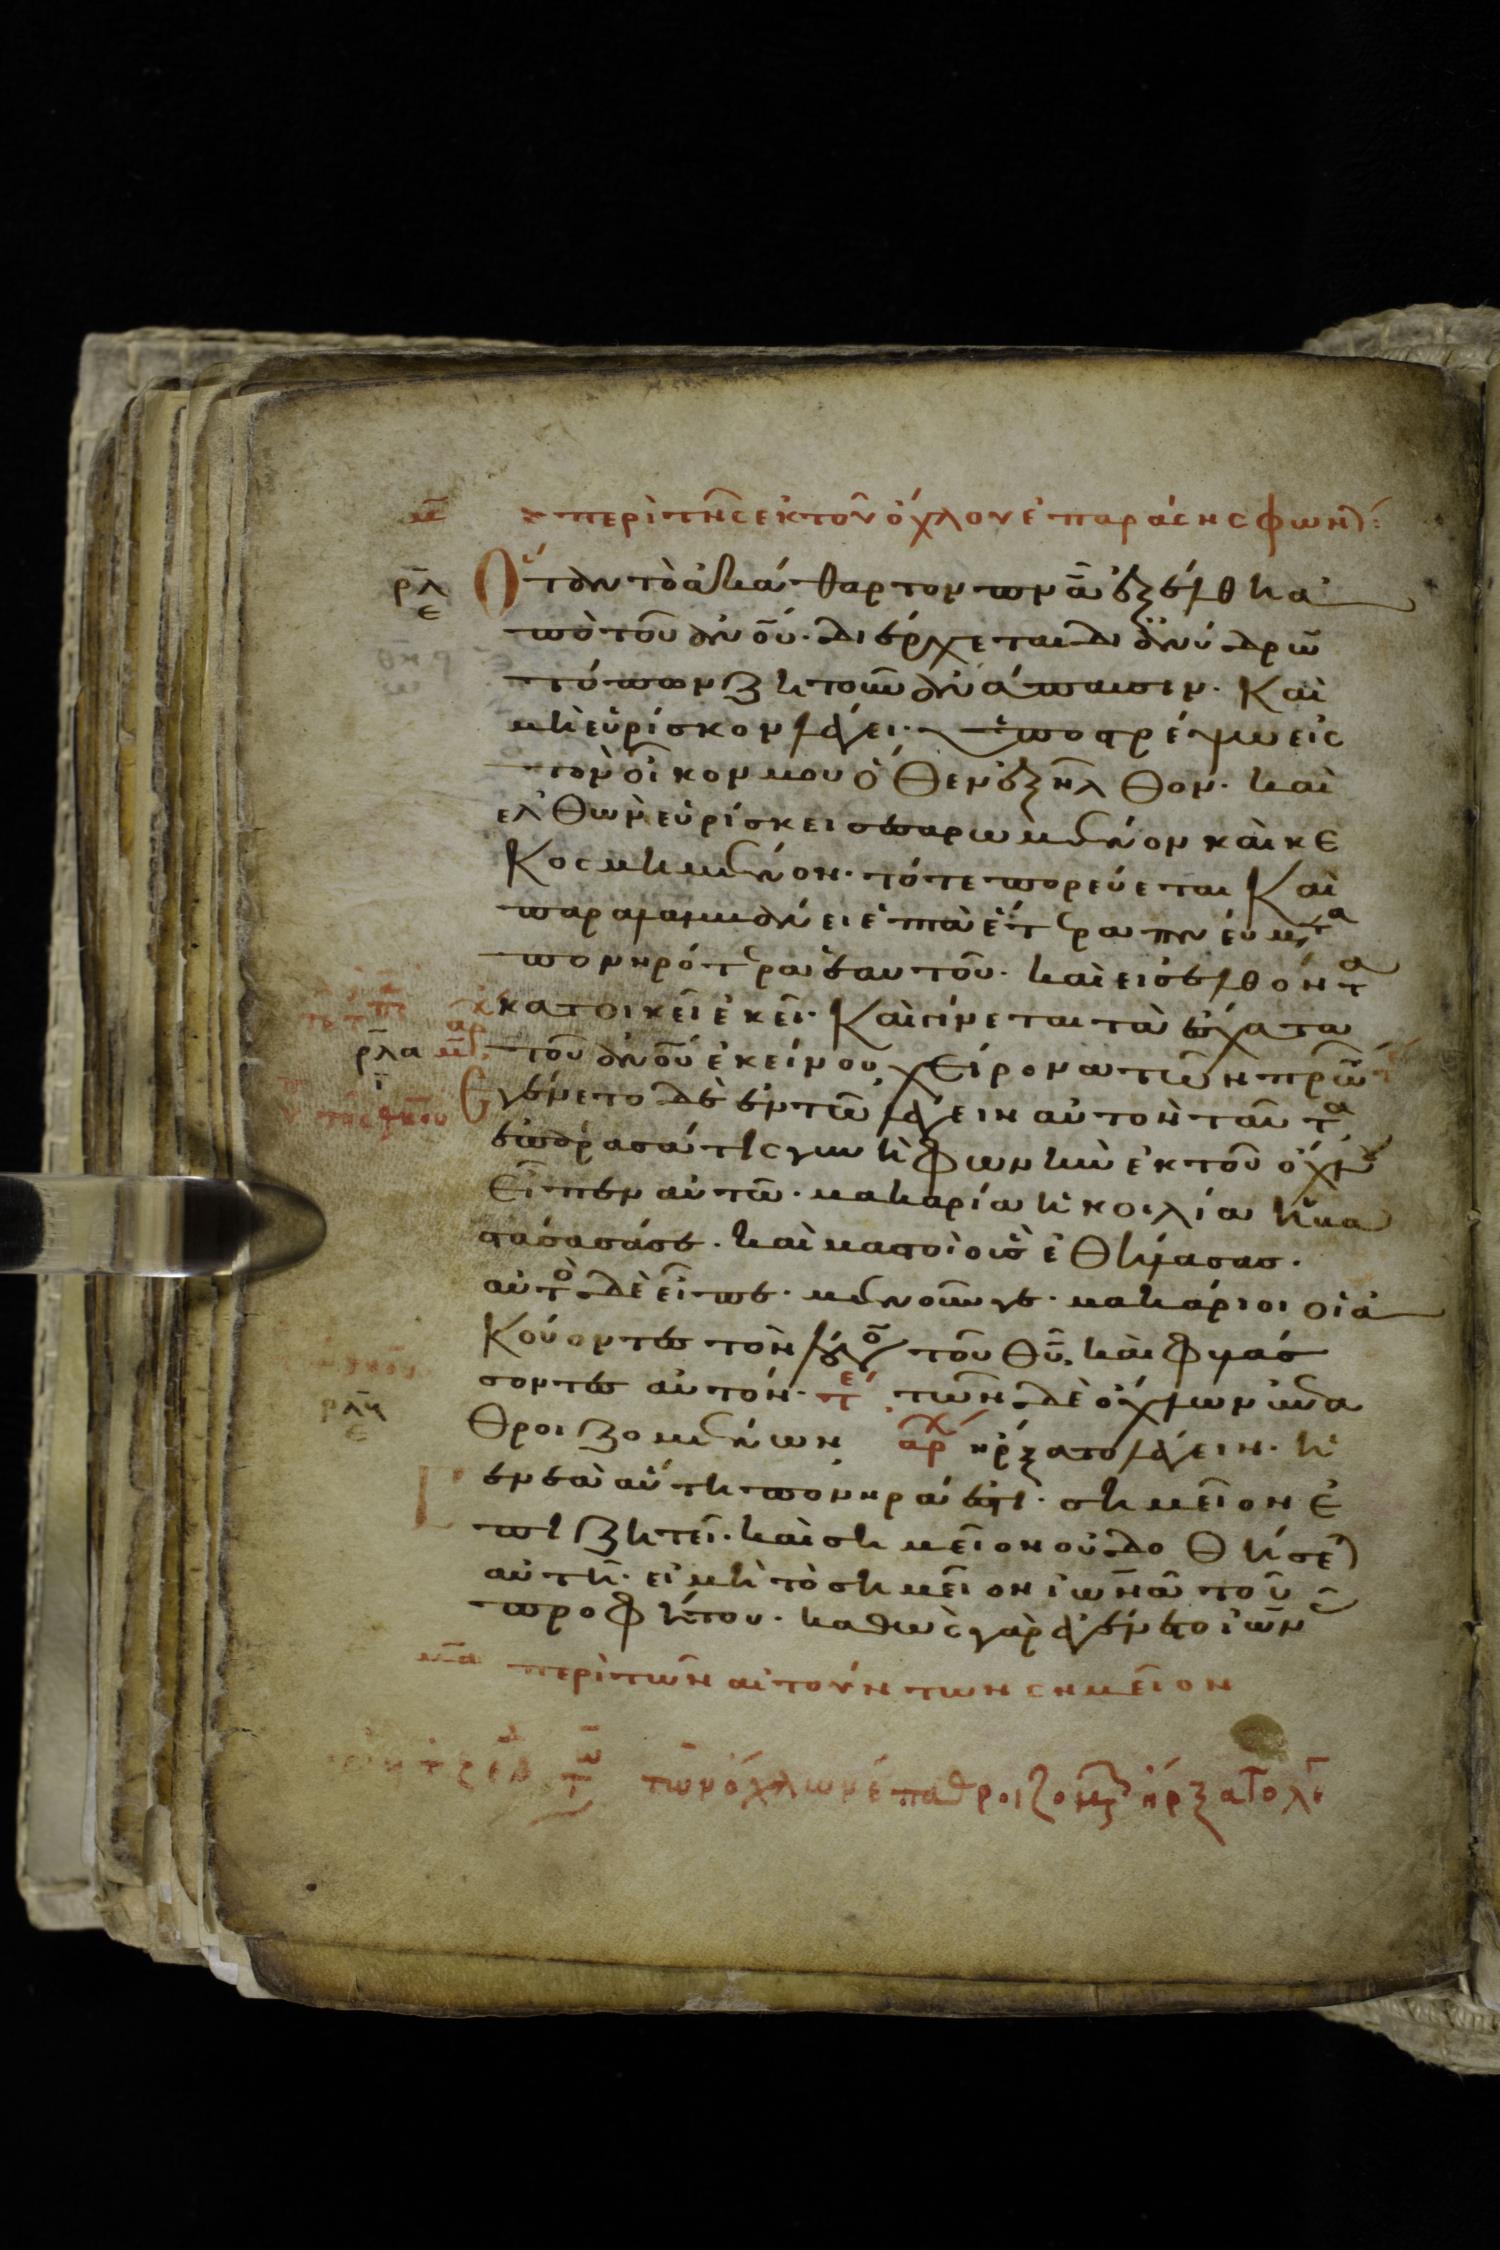 μ περὶ τῆς ἐκ τοῦ ὄχλου ἐπαράσης φων(ήν):
ρ̅λ̅ ε Ὅταν τὸ ἀκάθαρτον πν̅α̅ ἐξέλθη ἀ
πὸ τοῦ ἀν̅ο̅υ̅. διέρχεται δι' ἀνύδρω̅
τόπων ζητοῦν ἀνάπαυσιν. Καὶ
μὴ εὑρίσκον λέγει. ὑποστρέψω εἰς
τὸν οἶκόν μου ὅθεν ἐξῆλθον. καὶ
ἐλθὼν εὑρίσκει σεσαρωμένον καὶ κε
κοσμημένον. τότε πορεύεται Καὶ
παραλαμβάνει ἑπτὰ ἕτερα πνεύματα
πονηρότερα ἑαυτοῦ. καὶ εἰσελθόντα
κατοικεῖ ἐκεῖ. Καὶ γίνεται τὰ ἔσχατα
ρ̅λ̅α̅ ι τοῦ ἀν̅ο̅υ̅ ἐκείνου χείρονα τῶν πρώ
Ἐγένετο δὲ ἐν τῶ λέγειν αὐτὸν ταῦτα
ἐπάρασά τις γυνὴ φωνὴν ἐκ τοῦ ὄχλου
εἶπεν αὐτῶ. μακαρία ἡ κοιλία ἡ βα
στάσασά σε. καὶ μαστοὶ οὓς ἐθήλασας.
αὐτὸς δὲ εἶπε. μενοῦνγε. μακάριοι οἱ ἀ
κούοντες τὸν λόγον τοῦ θ̅υ̅ καὶ φυλάσ
σοντες αὐτόν. τε τῶν δὲ ὄχλων ἐπα
θροιζομένων αρχ ἤρξατο λέγειν. ἡ
γενεὰ αὕτη πονηρά ἐστι. σημεῖον ἐ
πιζητεῖ. καὶ σημεῖον οὐ δοθήσε(ται)
αὐτῆ. εἰ μὴ τὸ σημεῖον ἰωνᾶ τοῦ
προφήτου. καθὼς γὰρ ἐγένετο ἰων
μ̅α̅ περὶ τῶν αἰτούντων σημεῖον
τῶν ὄχλων ἐπαθροιζομ ἤρξατο λε